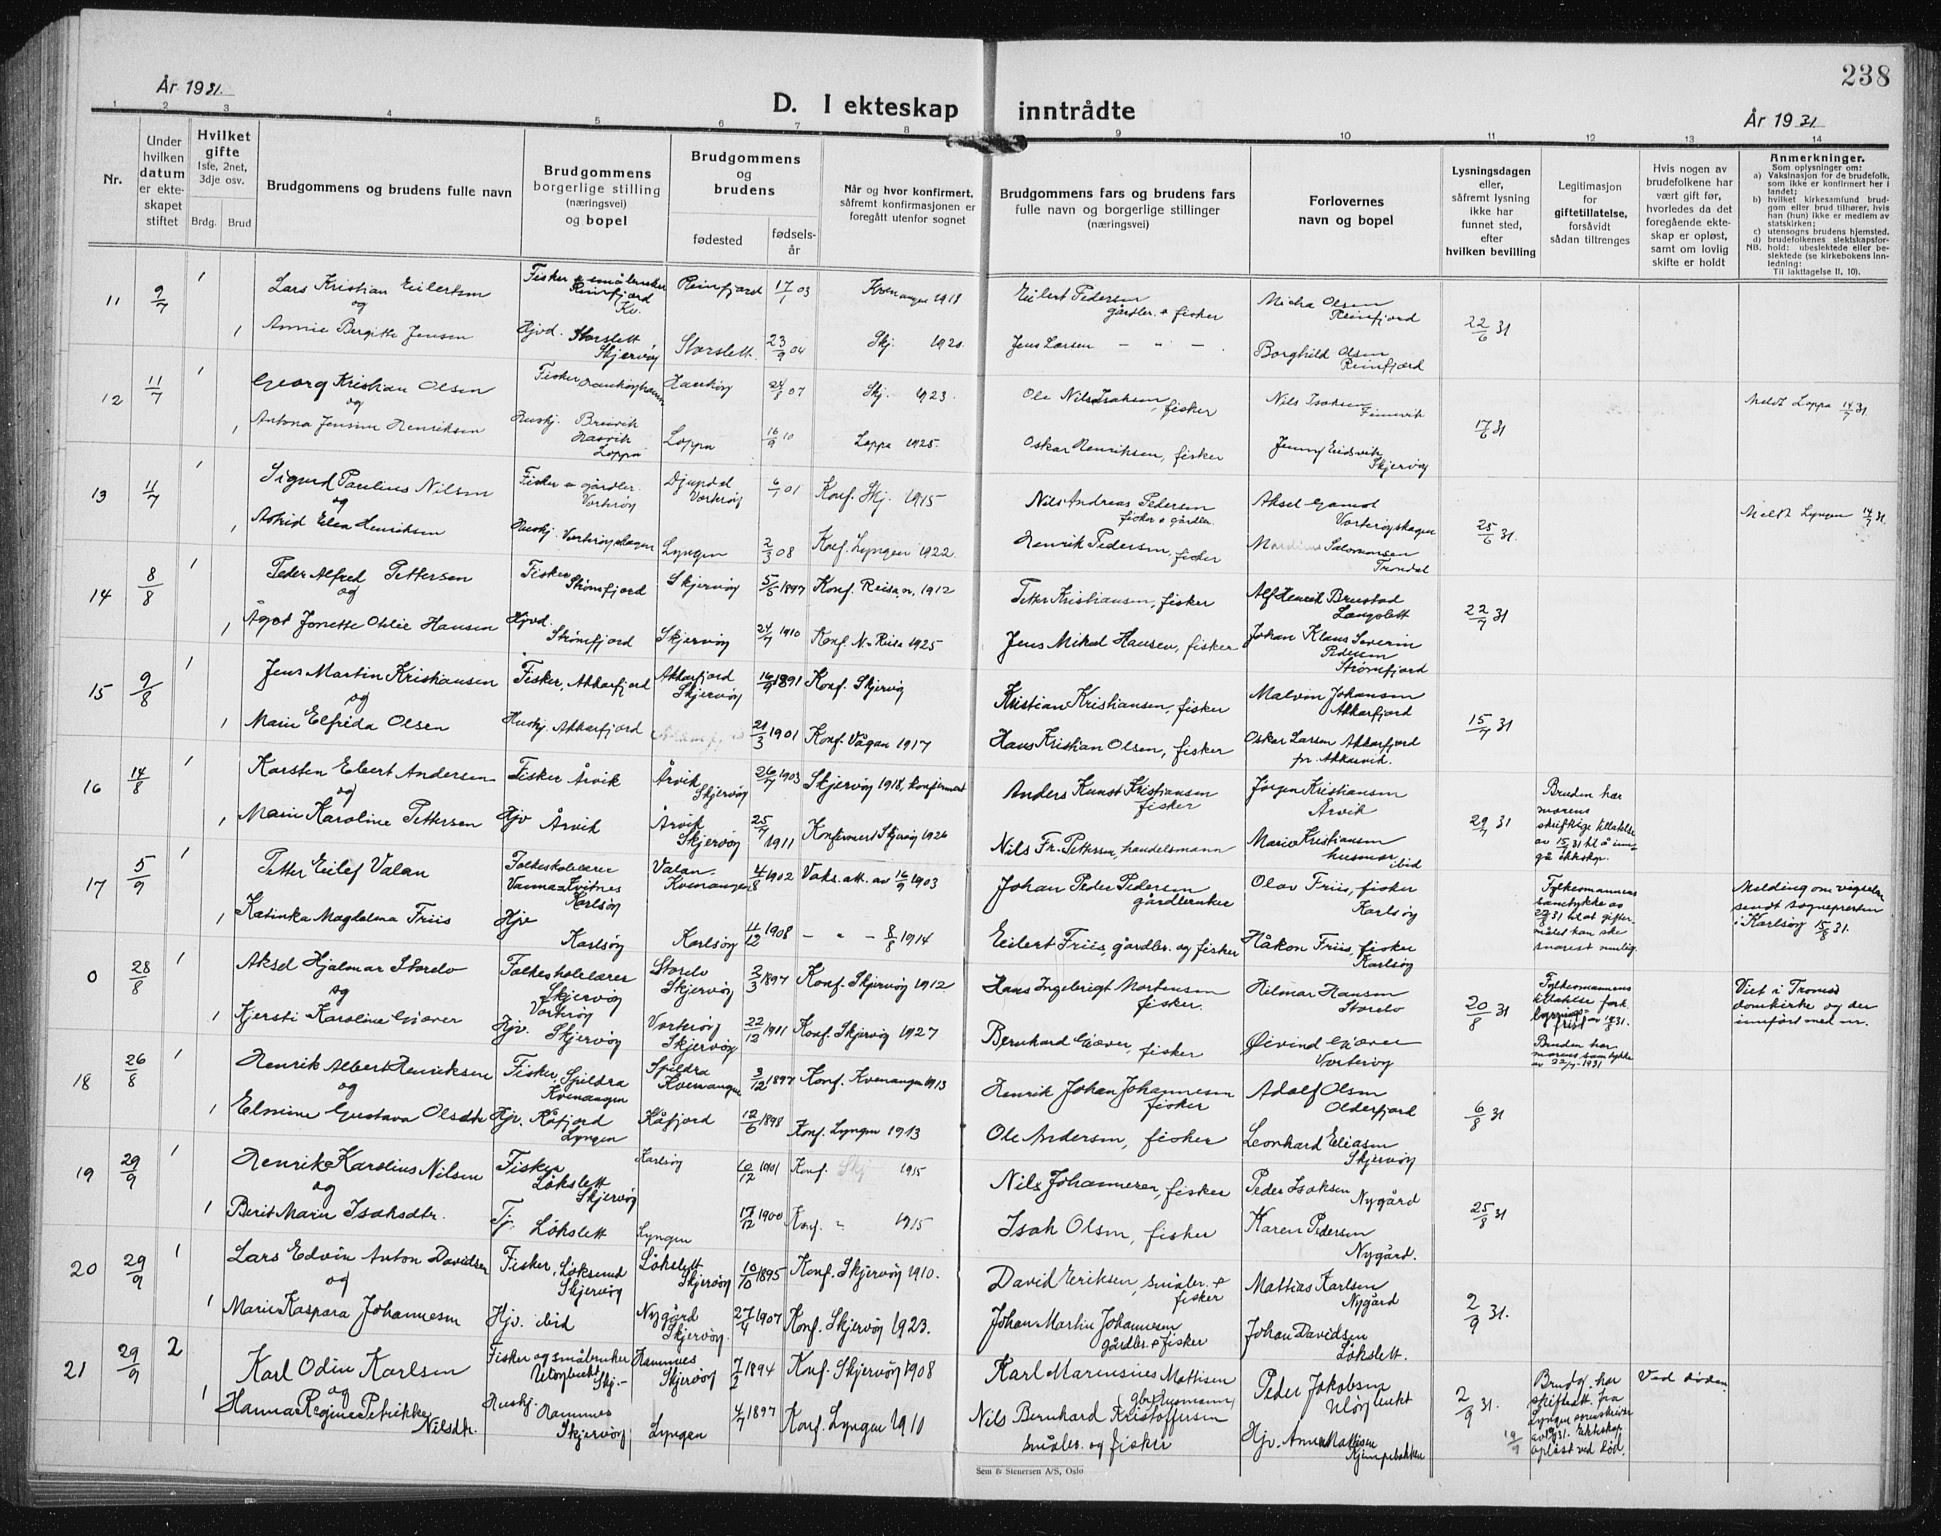 238
År 1931.
D. I ekteskap inntrådte
År 1931
1 2 3 4 5 6 7 8 9 10 11 12 13 14
Nr.
Under hvilken datum er ekteskapet stiftet
Hvilket gifte
1ste, 2net, 3dje osv.
Brdg. Brud
Brudgommens og brudens fulle navn
Brudgommens borgerlige stilling (næringsvei) og bopel
Brudgommens og brudens
fødested
fødselsår
Når og hvor konfirmert, såfremt konfirmasjonen er foregått utenfor sognet
Brudgommens fars og brudens fars fulle navn og borgerlige stillinger (næringsvei)
Forlovernes navn og bopel
Lysningsdagen eller, såfremt lysning ikke har funnet sted, efter hvilken bevilling
Legitimasjon for giftetillatelse, forsåvidt sådan tiltrenges
Hvis nogen av brudefolkene har vært gift før, hvorledes da det foregående ekteskap er opløst, samt om lovlig skifte er holdt
Anmerkninger.
Som oplysninger om:
a) Vaksinasjon for de brudefolk, som ikke er konfirmert her i landet;
b) hvilket kirkesamfund brudgom eller brud tilhører, hvis han (hun) ikke er medlem av statskirken;
c) utensogns brudens hjemsted.
d) brudefolkenes slektskapsforhold: ubeslektede eller beslektede (se kirkebokens innledning:
NB.
Til iakttagelse II, 10).
11 9/7 1 Lars Kristian Eilertsen Fisker & småbruker Reinfjord Kv. Reinfjord 17/1 03 Kvenangen 1918 Eilert Pedersen gårdbr. & fisker Micha Olsen Reinfjord 22/6 31
og
1 Annie Bergitte Jensen Hjvd. Storslett Skjervöy Storslett. 23/9 04 Skj. 1920. Jens Larsen — " — Borghild Olsen Reinfjord
12 11/7 1 Georg Kristian Olsen Fisker Hauköy 24/8 07 Skj. 1923. Ole Nils Isaksen, fisker Nils Isaksen 17/6 31 Meldt Loppa 14/7 31
og
1 Antona Jensine Henriksen Huskj. Breivik Hasvik Loppa Loppa 16/9 10 Loppa 1925. Oskar Henriksen, fisker Jenny Eidsvik Skjervöy
13 11/7 1 Sigurd Paulius Nilsen Fisker & gårdbr. Vorteröy Djupdal Vorteröy 6/1 01 Konf. Skj. 1915 Nils Andreas Pedersen fisker & gårdbr. Aksel Vorteröyskagen 25/6 31. Meldt Lyngen 14/7 31.
og
1 Astrid Elea Henriksen Huskj. Vorteröyskagen Lyngen 2/3 08 Konf. Lyngen 1922. Henrik Pedersen, fisker Salomonsen
14 8/8 1 Peder Alfred Pettersen Fisker Strömfjord Skjervöy 5/5 1897 Konf. Reisa, n. 1912 Petter Kristiansen, fisker Alf Henrik Brustad Langslett 22/7 31
og
1 Ågot Jonette Otilie Hansen Hjvd. Strömfjord Skjervöy 24/7 1910 Konf. N. Reisa 1925 Jens Mikal Hansen, fisker Johan Klaus Severin Pedersen Strömfjord
15 9/8 1 Jens Martin Kristiansen Fisker, Akkarfjord Akkarfjord Skjervöy 16/9 1891 Konf. Skjervöy Kristian Kristiansen, fisker Malvin Johansen Akkarfjord 15/7 31
og
1 Marie Elfrida Olsen Huskj. Akkarfjord 21/3 1901 Konf. Vågan 1917 Hans Kristian Olsen, fisker Oskar Larsen Akkarfjord pr. Akkarvik.
16 14/8 1 Karsten Elbert Andersen Fisker Årvik Årvik Skjervöy 26/7 1903 Skjervöy 1918, konfirmert Anders Kunst Kristiansen fisker Jörgen Kristiansen Årvik 29/7 31 Bruden har morens skriftlige tillatelse av 15/7 31 til å inngå ekteskap.
og
1 Marie Karoline Pettersen Hjv Årvik Årvik Skjervöy 25/7 1911 Konfirmert Skjervöy 1926 Nils Fr. Pettersen, handelsmann Marie Kristiansen husmor ibid
17 5/9 1 Petter Eilef Valan Folkeskolelærer Vanna Karlsöy Valan Kvenangen 4/8 1902 Vaks.att. av 16/9 1903 Johan Peder Pedersen gårdbruker Olav Friis, fisker Karlsöy Fylkesmannens samtykke av 29/8 31 til at giftermålet kan ske snarest mulig Melding om vigselen sendt sognepresten i Karlsöy 15/8 31.
1 Katinka Magdalena Friis Hjv Karlsöy Karlsöy 11/12 1908 — " — 8/8 1914 Eilert Friis, gårdbr. og fisker Håkon Friis, fisker Karlsöy
0 28/8 1 Aksel Hjalmar Storslo Folkeskolelærer Skjervöy Vorteröy Skjervöy 3/3 1897 Konf. Skjervöy 1912. Hans Ingebrigt Mortensen fisker. Hilmar Hansen 20/8 31 Fylkesmannens tillatelse fork. lysningsfrist av 14/8 31. Viet i Tromsö domkirke og der innfört med nr.
og
1 Kjersti Karoline Giæver Hjv. Skjervöy Vorteröy Skjervöy 22/12 1911 Konf. Skjervöy 1927 Bernhard Giæver, fisker Öivind Giæver Vorteröy Bruden har morens samtykke av 22/7-1931
18 26/8 1 Henrik Albert Henriksen Fisker, Spildra Kvenangen Spildra Kvenangen 3/12 1897 Konf. Kvenangen 1913 Henrik Johan Johannesen fisker Adolf Olsen Olderfjord 6/8 31
og
1 Elmine Gustava Olsdtr Hjv. Kåfjord Lyngen Kåfjord 12/6 1898 Konf. Lyngen 1913 Ole Andersen, fisker Leonhard Eliasen Skjervöy
19 29/9 1 Henrik Karolius Nilsen Fisker Lökslett Skjervöy Karlsöy 10/12 1901 Konf. Skj 1915 Nils Johannesen, fisker Peder Isaksen Nygård 25/8 31
og
1 Berit Marie Isaksdtr. Tj. Lökslett Lyngen 17/12 1900 Konf. " 1915 Isak Olsen, fisker Karen Pedersen Nygård.
20 29/9 1 Lars Edvin Anton Davidsen Fisker, Löksund Skjervöy Lökslett Skjervöy 10/10 1895 Konf. Skjervöy 1910. David Eriksen, småbr. & fisker Mattias Karlsen Nygård 2/9 31.
og
1 Marie Kaspara Johannesen Hjv. ibid Nygård Skjervöy. 27/4 1907 Konf. Skjervöy 1923. Johan Martin Johannesen gårdbr. & fisker Johan Davidsen Lökslett.
21 29/9 2 Karl Odin Karlsen Fisker og småbruker Ulöybukt Skj.- Hamnes Skjervöy 7/2 1894 Konf. Skjervöy 1908 Karl Marensius Mattisen Gbr. (Husmann) Peder Jakobsen Ulöybukt 2/9 31. Brudg. har skifteatt. fra Lyngen sorenskriver av 19/9 31. Ekteskap opløst ved död. Ved döden
og
1 Hanna Regine Petrikke Nilsdtr. Huskj. Hamnes Skjervöy Lyngen 4/7 1897 Konf. Lyngen 1910 Nils Bernhard Kristoffersen småbr. og fisker Hjv. Anna Mattisen Kjempebakken 19/9
Sem & Stenersen A/S, Oslo